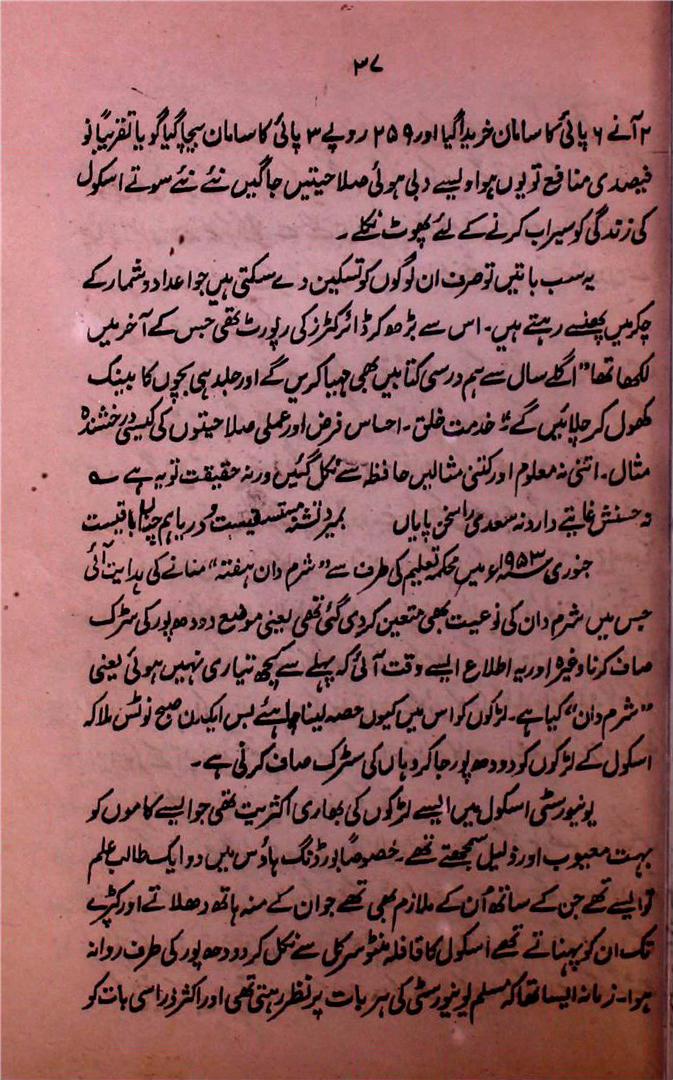 ۳۷
۲ آنے ۶ پائی کا سامان خریدا گیا اور ۲۵۹ روپے ۳ پائی کا سامان بیچا گیا گویا تقریباً نو
فیصدی منافع تو یوں ہوا ویسے دبی ہوئی صلاحیتیں جاگیں نئے نئے سوتے اسکول
کی زندگی کو سیراب کرنے کے لئے پھوٹ نکلے ۔
یہ سب باتیں تو صرف ان لوگوں کو تسکین دے سکتی ہیں جو اعداد و شمار کے
چکر میں پھنسے رہتے ہیں۔ اس سے بڑھ کر ڈائرکٹرز کی رپورٹ تھی جس کے آخر میں
لکھا تھا "اگلے سال سے ہم درسی کتابیں بھی مہیا کریں گے اور جلد ہی بچوں کا بینک
کھول کر چلائیں گے" خدمت خلق ۔ احساس فرض اور عملی صلاحیتوں کی کیسی درخشندہ
مثال ۔ اتنی نہ معلوم اور کتنی مثالیں حافظہ سے نکل گئیں ورنہ حقیقت تو یہ ہے ؎
نہ حسنش غایتے دارد نہ سعدی را سخن پایاں بمیرد تشنہ مستسقی و دریا ہم چناں باقیست
جنوری ۱۹۵۳ء میں محکمہ تعلیم کی طرف سے "شرم دان ہفتہ" منانے کی ہدایت آئی
جس میں شرم دان کی نوعیت بھی متعین کر دی گئی تھی یعنی موضع دودھ پور کی سڑک
صاف کرنا وغیرہ اور یہ اطلاع ایسے وقت آئی کہ پہلے سے کچھ تیاری نہیں ہوئی یعنی
"شرم دان" کیا ہے۔ لڑکوں کو اس میں کیوں حصہ لینا چاہئے بس ایک دن صبح نوٹس ملا کہ
اسکول کے لڑکوں کو دودھ پور جا کر وہاں کی سڑک صاف کرنی ہے ۔
یونیورسٹی اسکول میں ایسے لڑکوں کی بھاری اکثریت تھی جو ایسے کاموں کو
بہت معیوب اور ذلیل سمجھتے تھے۔ خصوصاً بورڈنگ ہاؤس میں دو ایک طالب علم
تو ایسے تھے جن کے ساتھ اُن کے ملازم بھی تھے جو ان کے منہ ہاتھ دھلاتے اور کپڑے
تک ان کو پہناتے تھے اسکول کا قافلہ منٹو سرکل سے نکل کر دودھ پور کی طرف روانہ
ہوا۔ زمانہ ایسا تھا کہ مسلم یونیورسٹی کی ہر بات پر نظر رہتی تھی اور اکثر ذرا سی بات کو